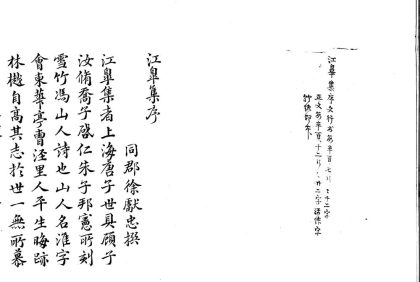 江皋集序文行書每半頁七行行十二字
正文每半頁十二行行廿二字
江皋集序
同郡徐獻忠撰
江皋集者上海唐子世具顧子
汝脩喬子啓仁朱子邦憲所刻
雪竹馮山人詩也山人名淮字
會東華亭曹涇里人平生晦跡
林樾自高其志於世一無所慕